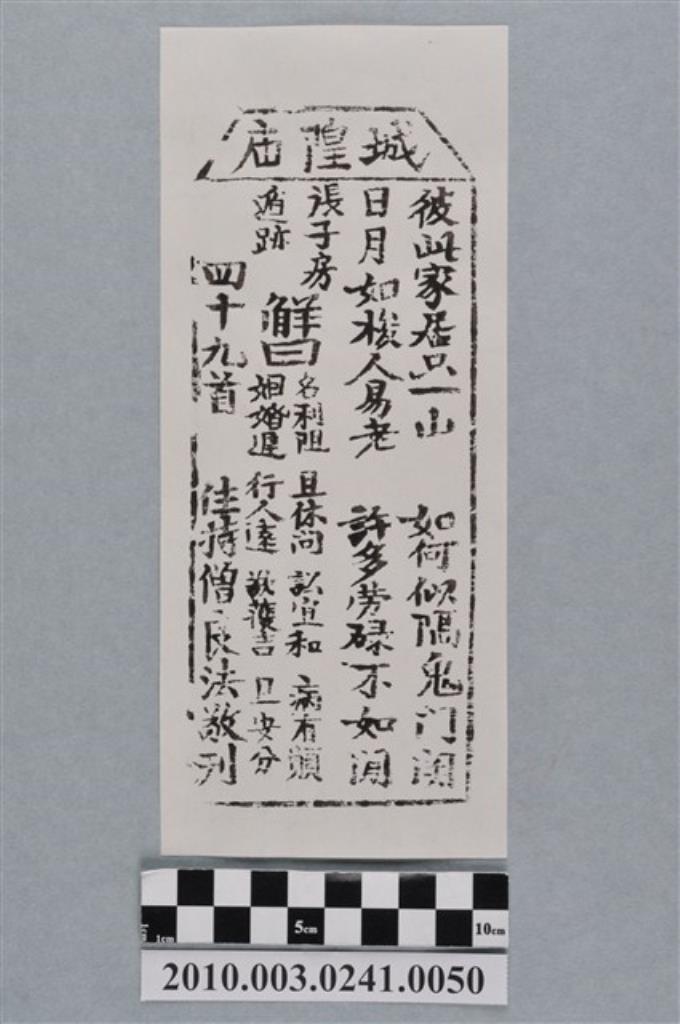 城隍庙
彼此家居只一山 如何似隔鬼门關
日月如梭人易老 許多劳碌不如閒
張子房
遁跡
解曰
名利阻 且休问 訟宜和 病有
姻婚遲 行人遠 吉 且安分
四十九首 住持僧良法敬刋
5cm 10cm
1cm
2010.003.0241.0050